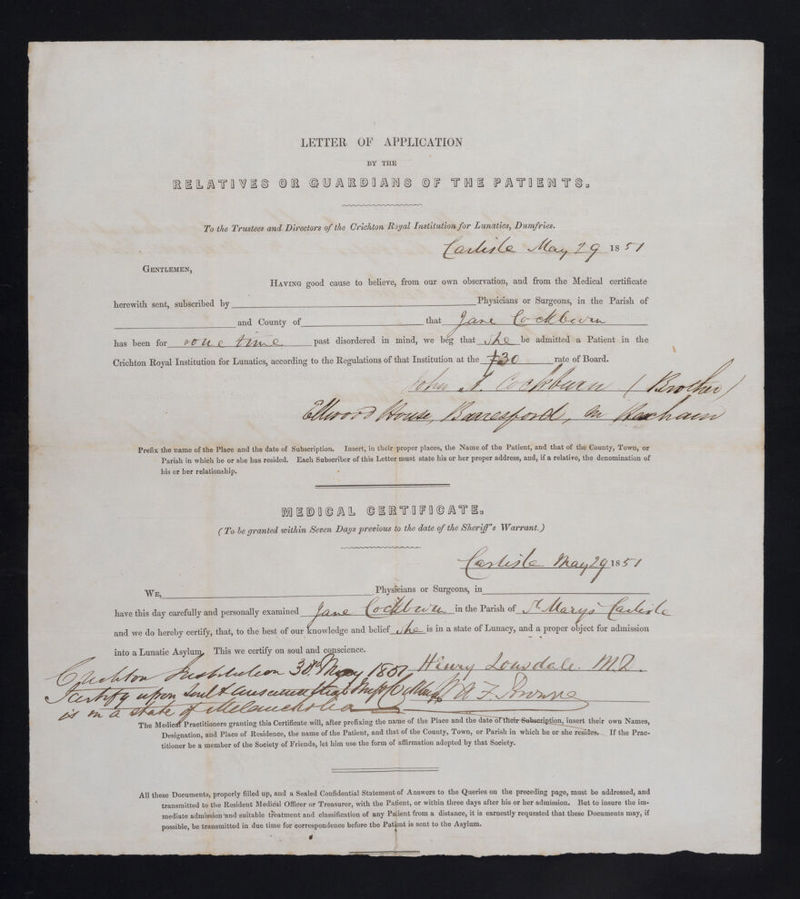 LETTER OF APPLICATION
BY THE
RELATIVES OR GUARDIANS OF THE PATIENTS.
To the Trustees and Directors of the Crichton Royal Institution for Lunatics, Dumfries.
Carlisle May 29 1851
GENTLEMEN,
HAVING good cause to believe, from our own observation, and from the Medical certificate
herewith sent, subscribed by Physicians or Surgeons, in the Parish of
and County of that Jane Cockburn
has been for some time past disordered in mind, we beg that she be admitted a Patient in the
Crichton Royal Institution for Lunatics, according to the Regulations of that Institution at the £30 rate of Board.
John Cockburn (Brother)
Ellwood House, Barresford, Hexham
Prefix the name of the Place and the date of Subscription. Insert, in their proper places, the Name of the Patient, and that of the County, Town, or
Parish in which he or she has resided. Each Subscriber of this Letter must state his or her proper address, and, if a relative, the denomination of
his or her relationship.
MEDICAL CERTIFICATE.
(To be granted within Seven Days previous to the date of the Sheriff's Warrant.)
Carlisle May 29 1851
WE, Physicians or Surgeons, in
have this day carefully and personally examined Jane Cockburn in the Parish of St Mary's Carlisle
and we do hereby certify, that, to the best of our knowledge and belief she is in a state of Lunacy, and a proper object for admission
into a Lunatic Asylum. This we certify on soul and conscience.
Crichton Institution 30th May 1851 Henry Lonsdale M.D.
I certify upon Soul & Conscience that Miss W A F Browne
is in a state of Melancholia
The Medical Practitioners granting this Certificate will, after prefixing the name of the Place and the date of their Subscription, insert their own Names,
Designation, and Place of Residence, the name of the Patient, and that of the County, Town, or Parish in which he or she resides. If the Prac-
titioner be a member of the Society of Friends, let him use the form of affirmation adopted by that Society.
All these Documents, properly filled up, and a Sealed Confidential Statement of Answers to the Queries on the preceding page, must be addressed, and
transmitted to the Resident Medical Officer or Treasurer, with the Patient, or within three days after his or her admission. But to insure the im-
mediate admission and suitable treatment and classification of any Patient from a distance, it is earnestly requested that these Documents may, if
possible, be transmitted in due time for correspondence before the Patient is sent to the Asylum.